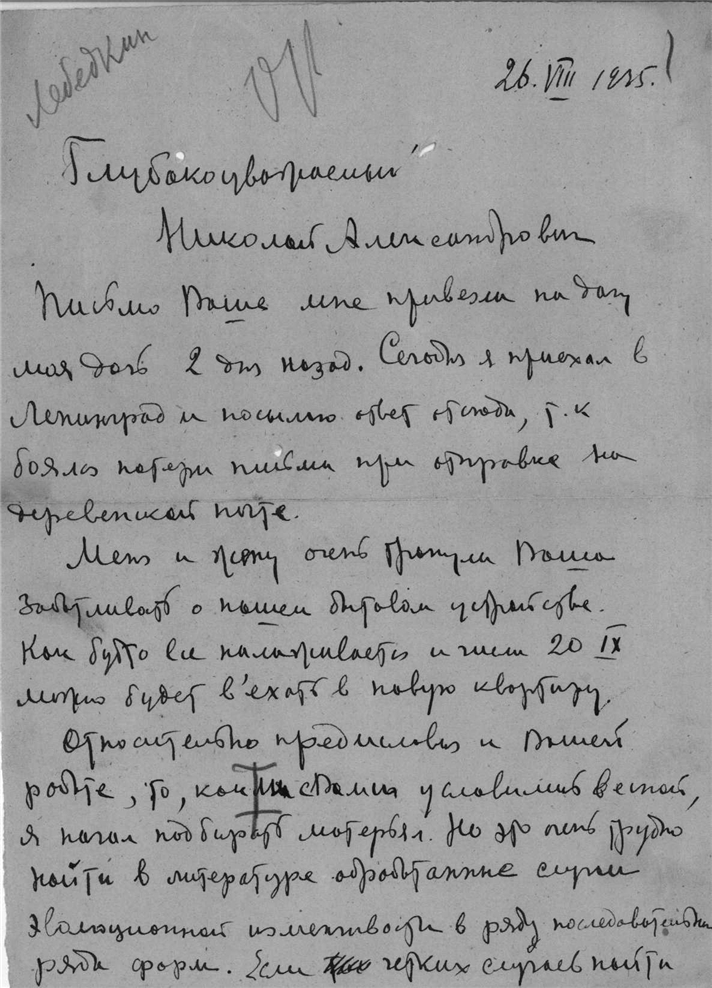 Лебедкин
26.VIII 1935.
Глубокоуважаемый
Николай Александрович
Письмо Ваше мне привезли на дачу
моя дочь 2 дня назад. Сегодня я приехал в
Ленинград и посылаю ответ отсюда, т.к
боялся потери письма при отправке на
деревенской почте.
Меня и жену очень тронула Ваша
заботливость о нашем бытовом устройстве.
Как будто все налаживается и числа 20 IX
можно будет в'ехать в новую квартиру.
Относительно предисловия к Вашей
работе, то, как мы с Вами условились весной,
я начал подбирать матерьял. Но это очень трудно
найти в литературе обработанные случаи
эволюционной изменчивости в ряду последовательн
ряда форм. Если четких случаев найти